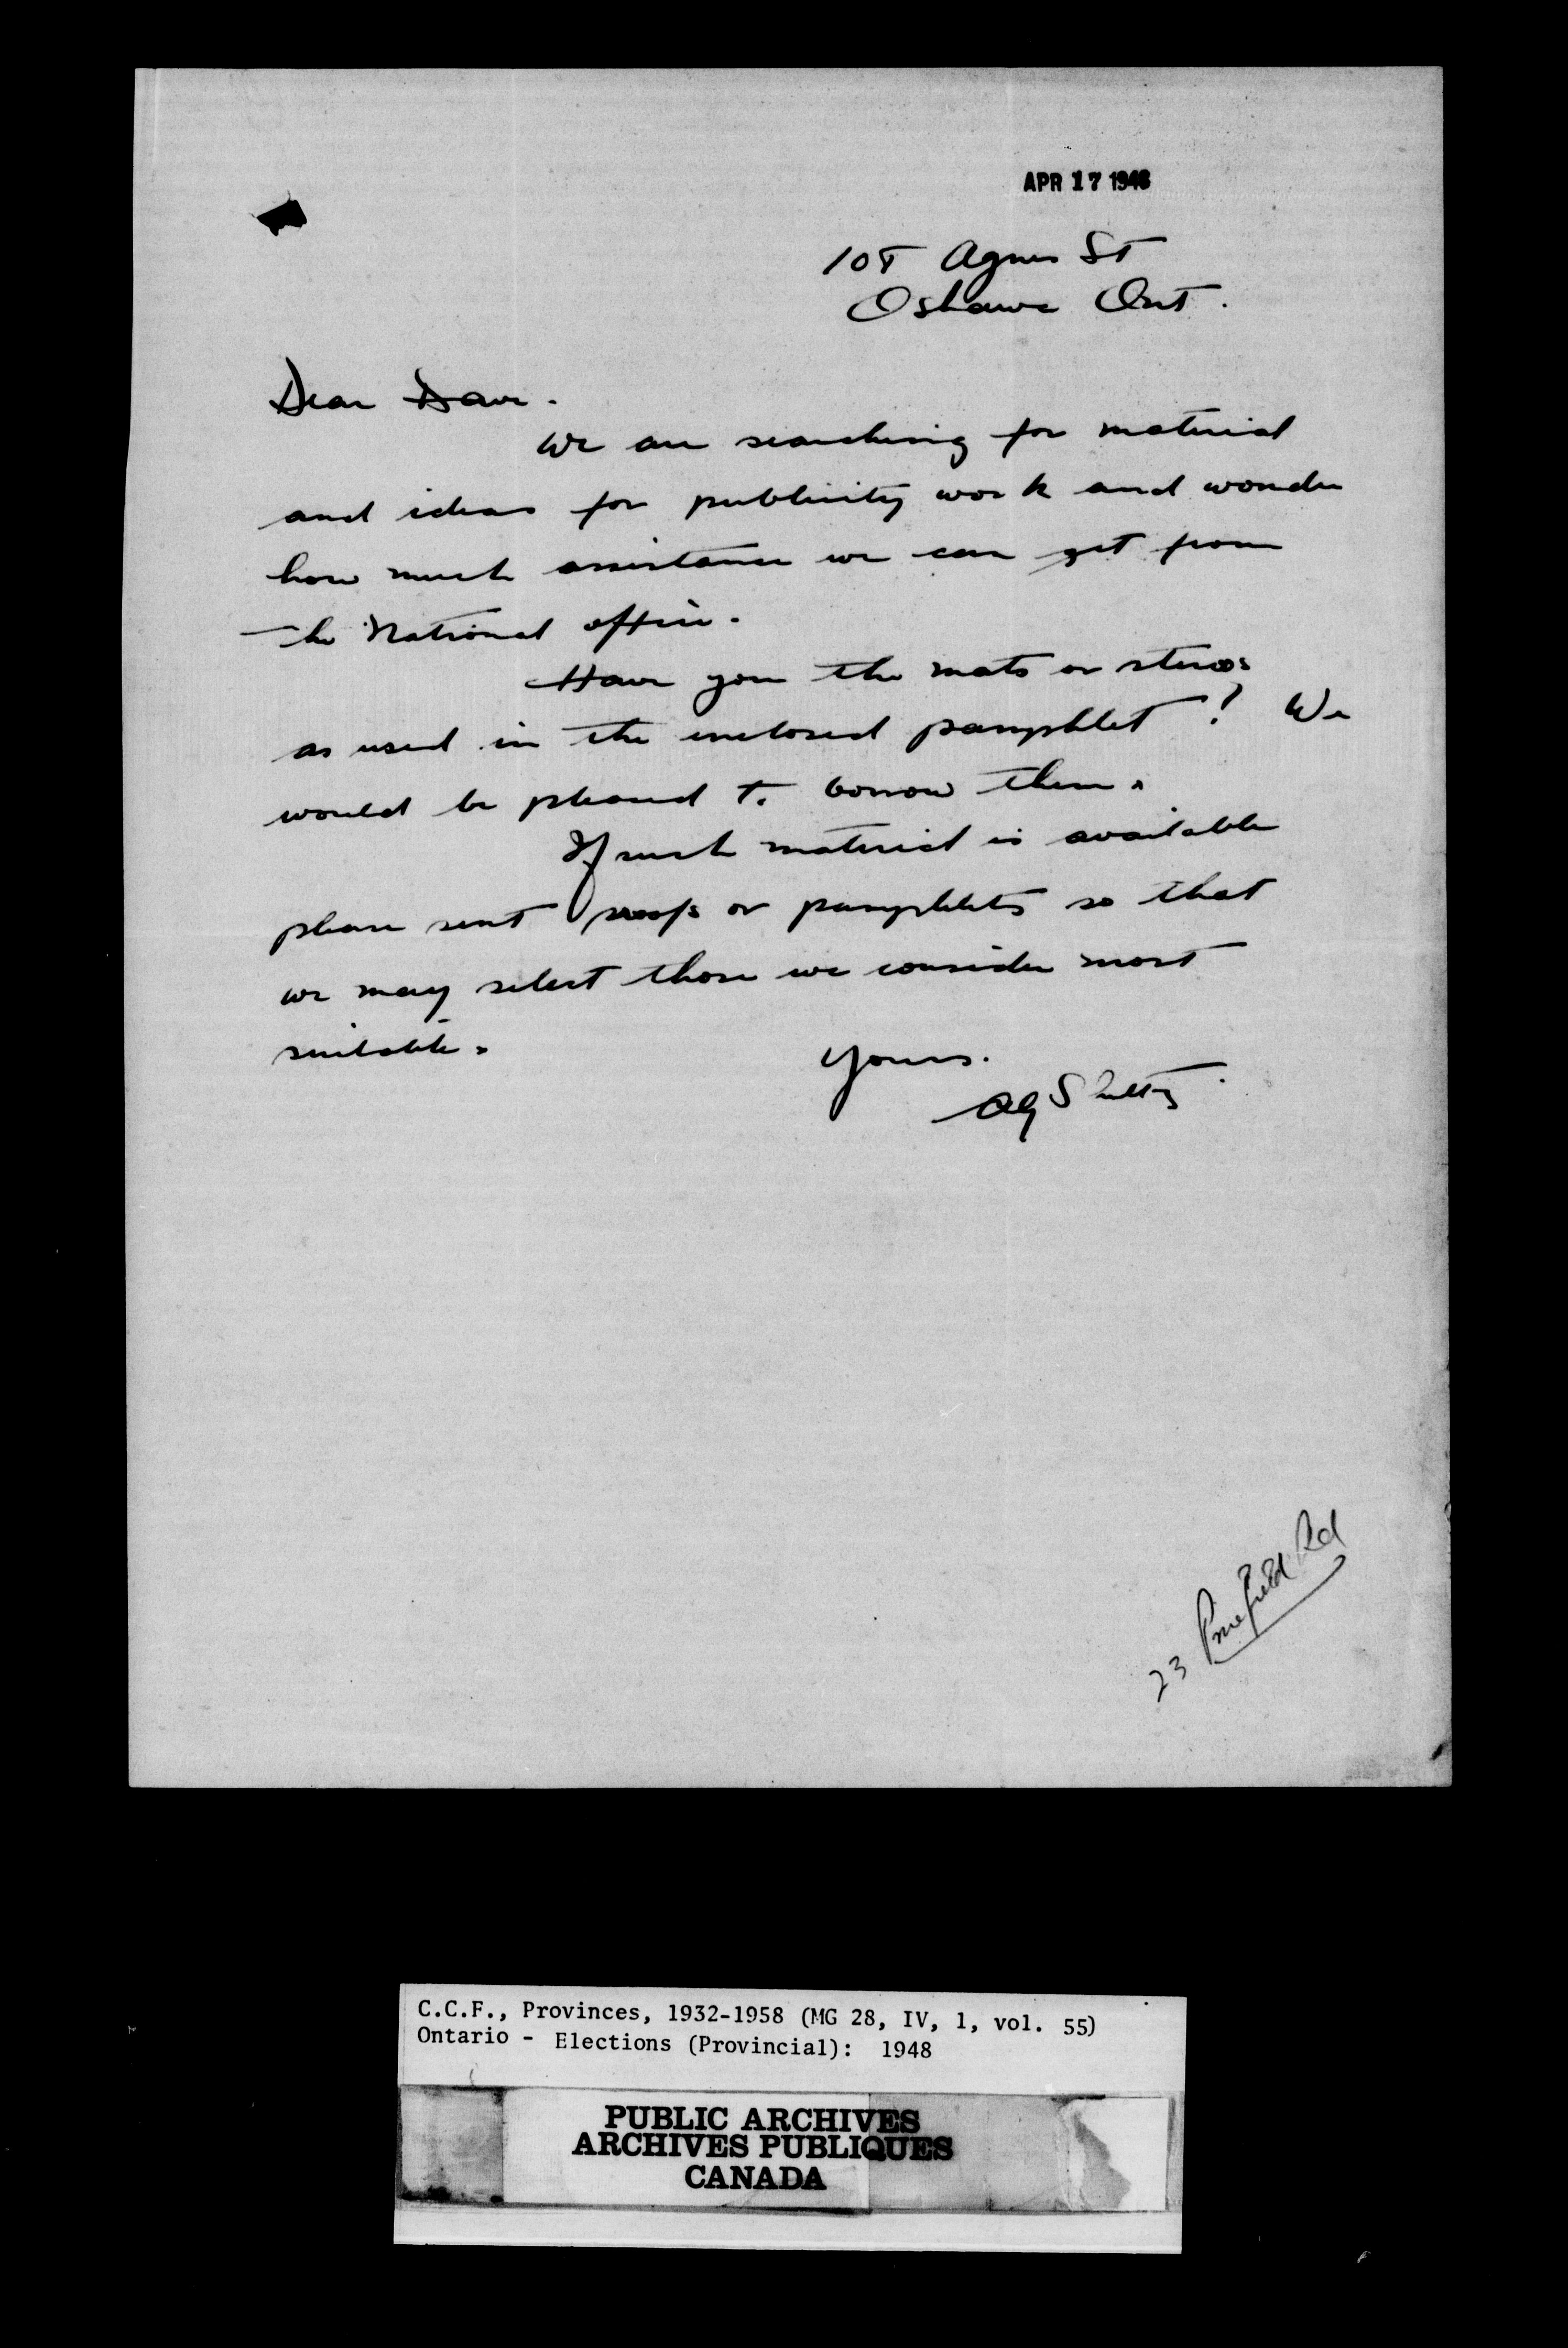 APR 17 1948
108 Agnes St
Oshawa Ont.
Dear Dave.
We are searching for material
and ideas for publicity work and wonder
how much assistance we can get from
the National office.
Have you the mats or stereos
as used in the enclosed pamphlet? We
would be pleased to borrow them.
If such material is available
please sent proofs or pamphlets so that
we may select those we consider most
suitable.
Yours.
AG Shultz
23 Pinefield Rd
C.C.F., Provinces, 1932-1958 (MG 28, IV, 1, vol. 55)
Ontario - Elections (Provincial): 1948
PUBLIC ARCHIVES
ARCHIVES PUBLIQUES
CANADA